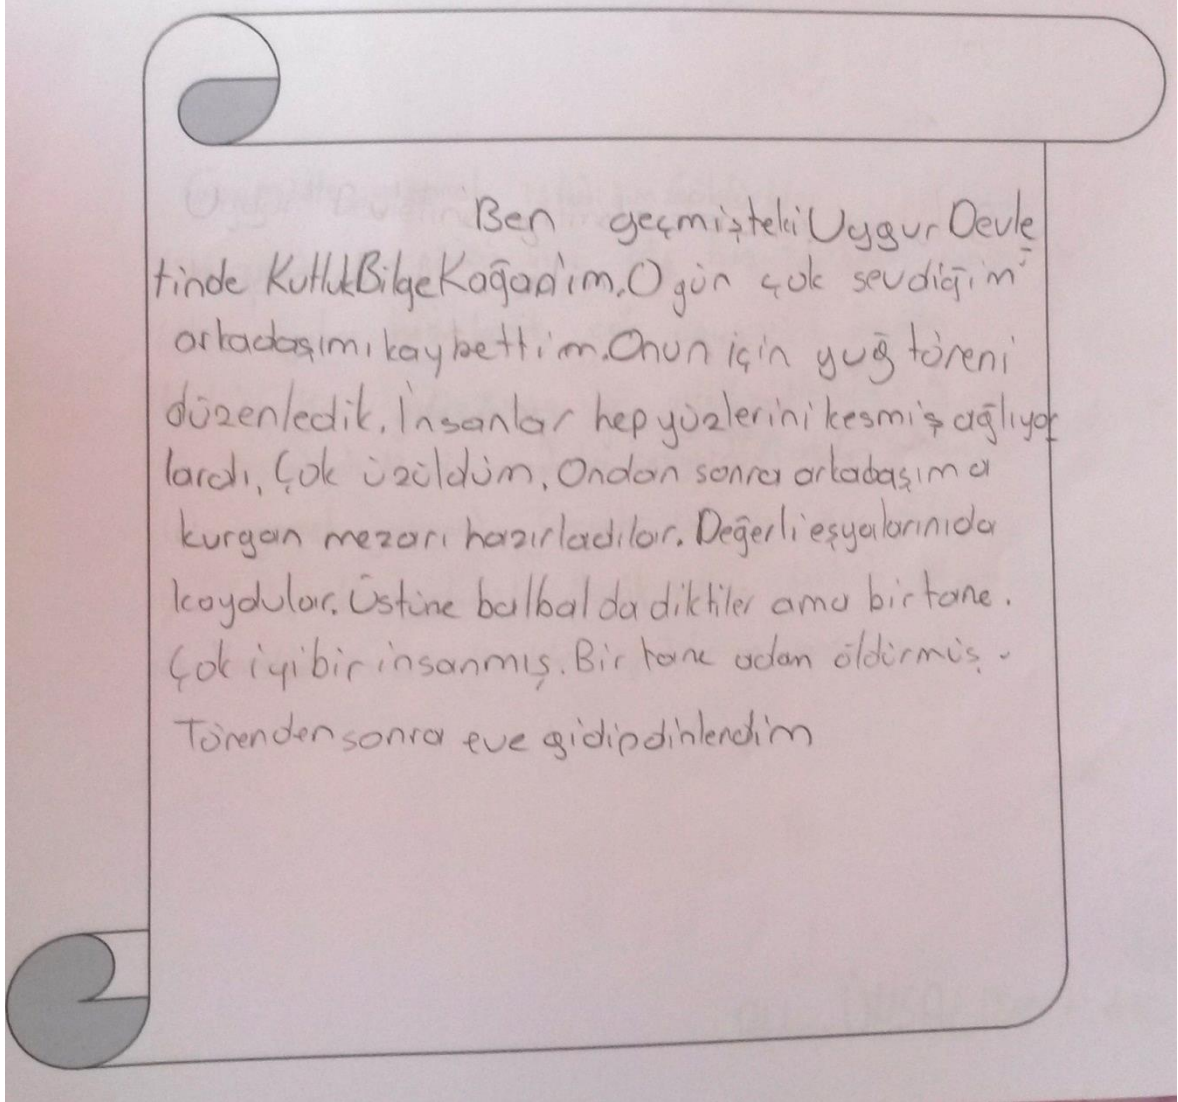 Ben geçmişteki Uygur Devle
tinde Kutluk Bilge Kağan'ım. O gün çok sevdiğim
arkadaşımı kaybettim. Onun için yuğ töreni
düzenledik. İnsanlar hep yüzlerini kesmiş ağlıyor
lardı, Çok üzüldüm. Ondan sonra arkadaşıma
kurgan mezarı hazırladılar. Değerli eşyalarınıda
koydular. Üstüne balbal da diktiler ama bir tane.
Çok iyi bir insanmış. Bir tane adam öldürmüş.
Törenden sonra eve gidip dinlendim